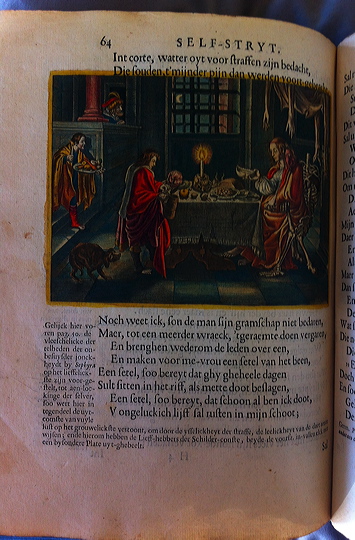 64 SELF-STRYT.
Int corte, watter oyt voor straffen zijn bedacht,
Die souden, t'mijnder pijn dan werden voort-gebracht
Noch weet ick, son de man sijn gramschap niet bedaren,
Maer, tot een meerder wraeck, 'tgeraemte doen vergaren,
En brenghen wederom de leden over een,
En maken voor me-vrou een setel van het been,
Een setel, soo bereyt dat ghy gheheele dagen
Sult sitten in het rif, als mette doot beslagen,
Een setel, soo bereyt, dat schoon al ben ick doot,
V ongeluckich lijf sal rusten in mijn schoot;
Gelijck hier vo-
ren pag. 10. de
vleeschelicke
heyde by Sephyra
op het lieffelick-
ste zijn voor-ge-
stelt, tot aen-loc-
kinge der selver,
soo wert hier in
tegendeel de uyt-
comste van vuyle
lust op het grouwelickste vertoont, om door de ysselickheyt der straffe, de leelickheyt van de
wijsen; ende hierom hebben de Lieff-hebbers der Schilder-conste, beyde de
een bysondere Plate uyt-ghebeelt.